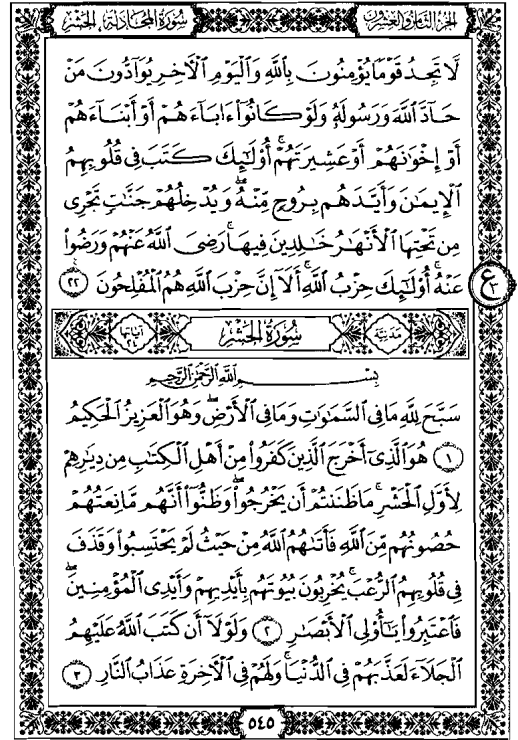 الجزء الثامن والعشرون سورة المجادلة، الحشر
لَّا تَجِدُ قَوْمًا يُؤْمِنُونَ بِٱللَّهِ وَٱلْيَوْمِ ٱلْأَخِرِ يُوَآدُّونَ مَنْ
حَآدَّ ٱللَّهَ وَرَسُولَهُۥ وَلَوْ كَانُوٓا۟ ءَابَآءَهُمْ أَوْ أَبْنَآءَهُمْ
أَوْ إِخْوَٰنَهُمْ أَوْ عَشِيرَتَهُمْ ۚ أُو۟لَٰٓئِكَ كَتَبَ فِى قُلُوبِهِمُ
ٱلْإِيمَٰنَ وَأَيَّدَهُم بِرُوحٍ مِّنْهُ ۖ وَيُدْخِلُهُمْ جَنَّٰتٍ تَجْرِى
مِن تَحْتِهَا ٱلْأَنْهَٰرُ خَٰلِدِينَ فِيهَا ۚ رَضِىَ ٱللَّهُ عَنْهُمْ وَرَضُوا۟
عَنْهُ ۚ أُو۟لَٰٓئِكَ حِزْبُ ٱللَّهِ ۚ أَلَآ إِنَّ حِزْبَ ٱللَّهِ هُمُ ٱلْمُفْلِحُونَ ٢٢
ع ٣
مدنية سورة الحشر آياتها ٢٤
بِسْمِ ٱللَّهِ ٱلرَّحْمَٰنِ ٱلرَّحِيمِ
سَبَّحَ لِلَّهِ مَا فِى ٱلسَّمَٰوَٰتِ وَمَا فِى ٱلْأَرْضِ ۖ وَهُوَ ٱلْعَزِيزُ ٱلْحَكِيمُ
١ هُوَ ٱلَّذِىٓ أَخْرَجَ ٱلَّذِينَ كَفَرُوا۟ مِنْ أَهْلِ ٱلْكِتَٰبِ مِن دِيَٰرِهِمْ
لِأَوَّلِ ٱلْحَشْرِ ۚ مَا ظَنَنتُمْ أَن يَخْرُجُوا۟ ۖ وَظَنُّوٓا۟ أَنَّهُم مَّانِعَتُهُمْ
حُصُونُهُم مِّنَ ٱللَّهِ فَأَتَىٰهُمُ ٱللَّهُ مِنْ حَيْثُ لَمْ يَحْتَسِبُوا۟ ۖ وَقَذَفَ
فِى قُلُوبِهِمُ ٱلرُّعْبَ ۚ يُخْرِبُونَ بُيُوتَهُم بِأَيْدِيهِمْ وَأَيْدِى ٱلْمُؤْمِنِينَ
فَٱعْتَبِرُوا۟ يَٰٓأُو۟لِى ٱلْأَبْصَٰرِ ٢ وَلَوْلَآ أَن كَتَبَ ٱللَّهُ عَلَيْهِمُ
ٱلْجَلَآءَ لَعَذَّبَهُمْ فِى ٱلدُّنْيَا ۖ وَلَهُمْ فِى ٱلْأَخِرَةِ عَذَابُ ٱلنَّارِ ٣
٥٤٥